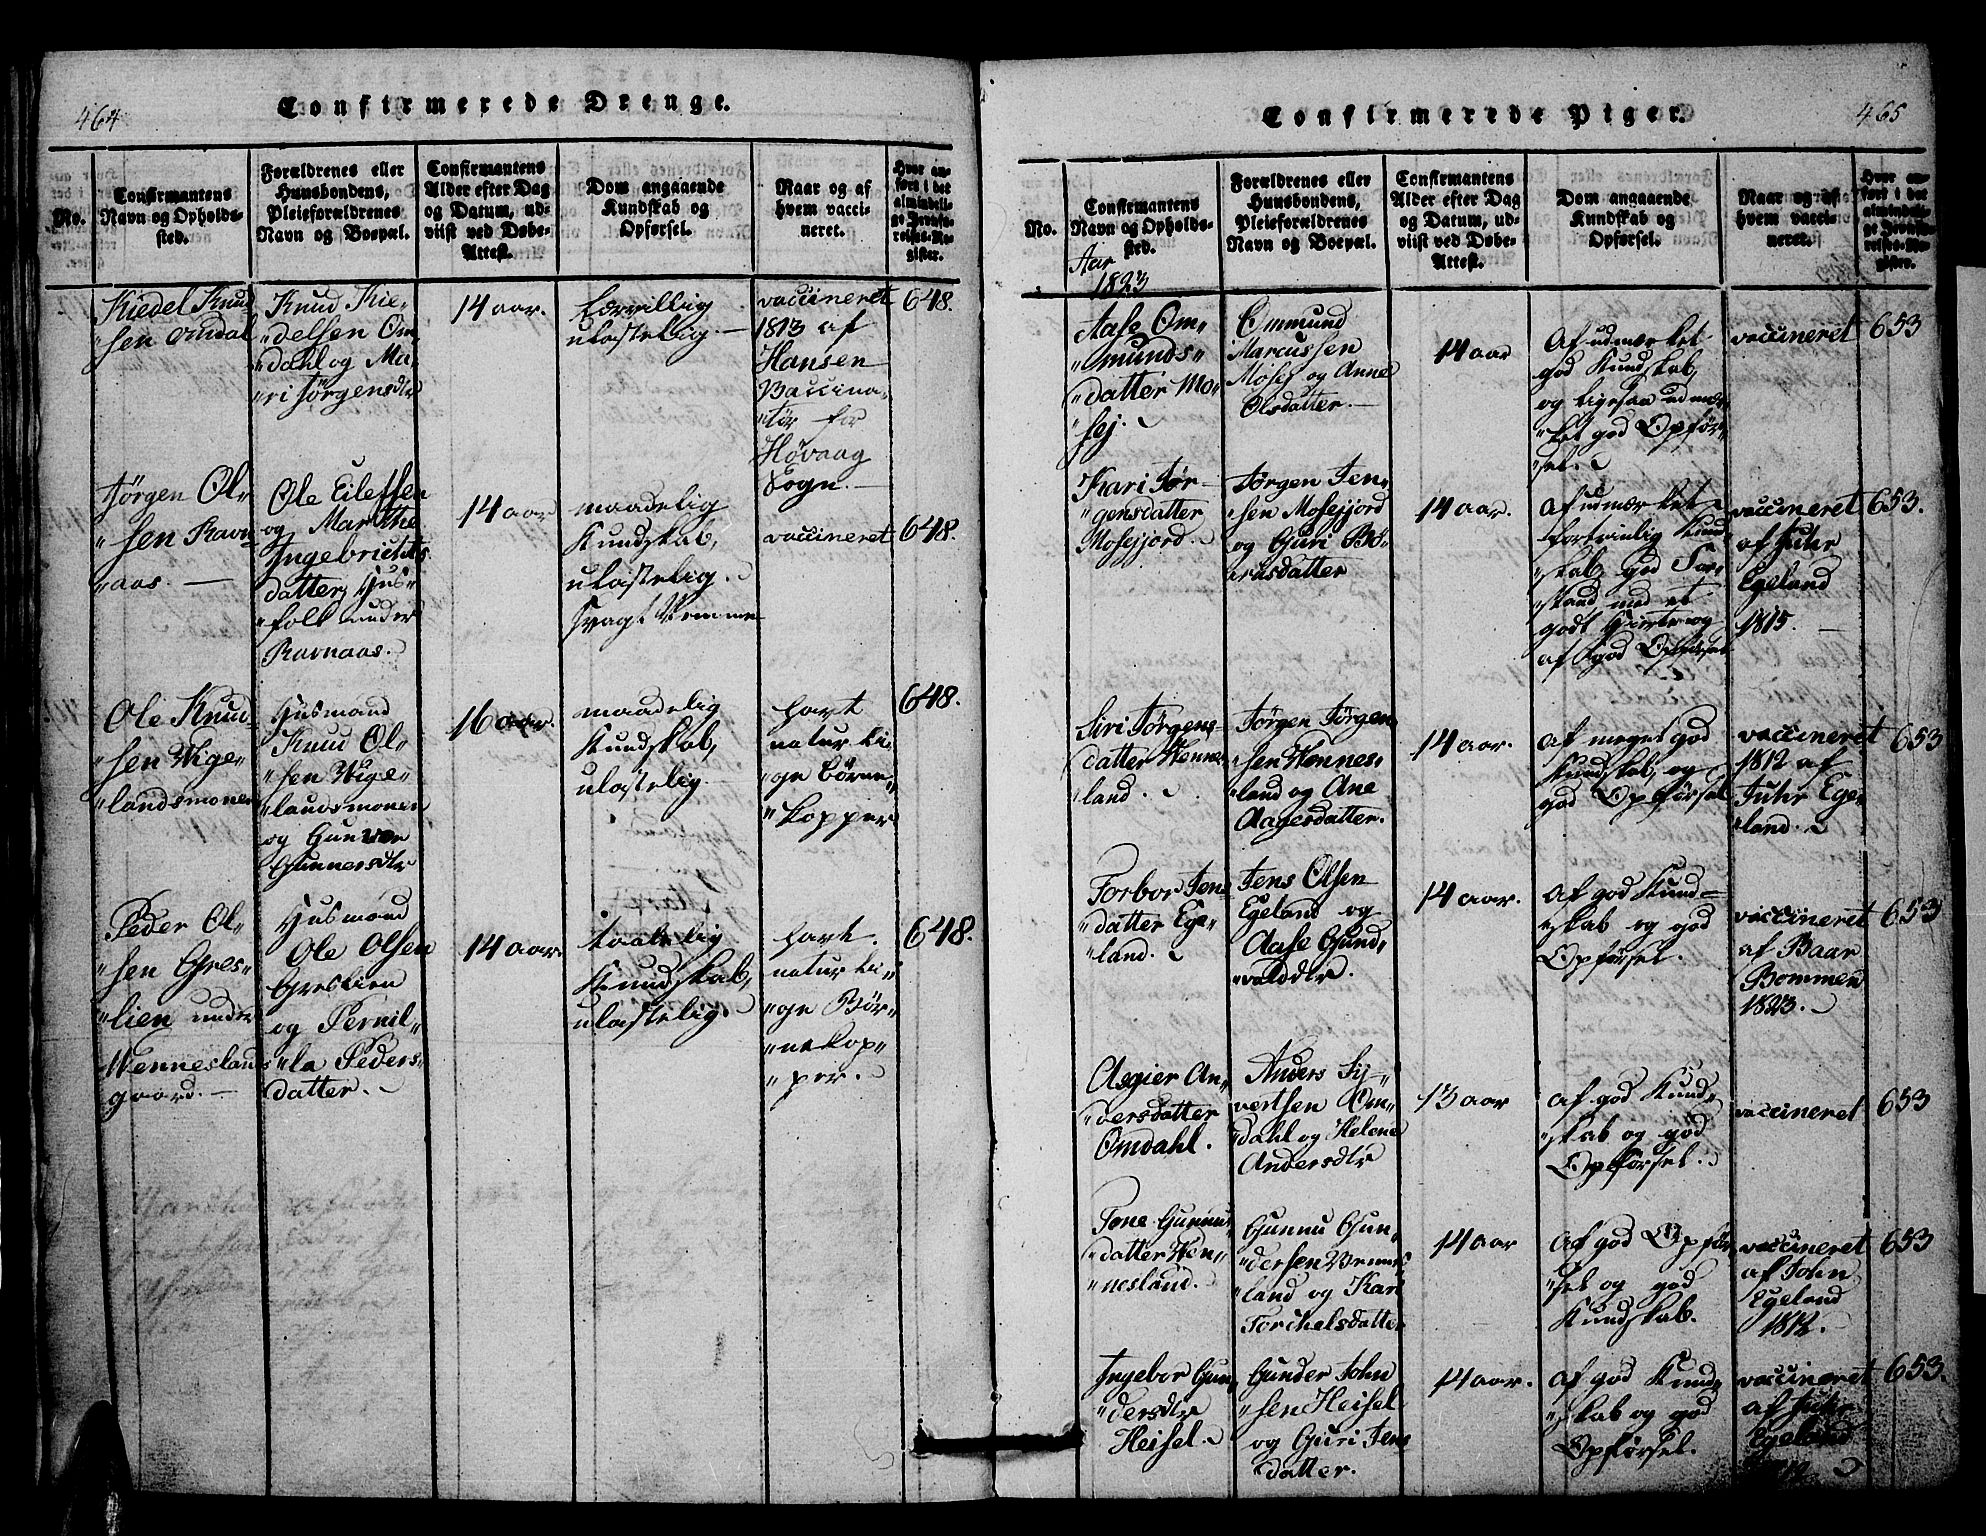 464
Confirmerede Drenge.
No.
Confirmantens
Navn og Opholds-
sted.
Forældrenes eller
Huusbondens,
Pleieforældrenes
Navn og Boepæl.
Confirmantens
Alder efter Dag
og Datum, ud-
viist ved Døbe-
Attest.
Dom angaaende
Kundskab og
Opførsel.
Naar og af
hvem vacci-
neret.
Hvor an-
ført i det
almindeli-
ge Jevnfø-
relses-Re-
gister.
Kiedel Knud
"sen Omdal
Knud Kie-
"delsen Om-
"dahl og Ma-
"ri Jørgensdtr
14 aar.
ulastelig.
vaccineret
1813 af
Hansen
Vaccina-
"tør for
Høvaag
Sogn
648.
Jørgen Ol-
"sen Ravn-
"aas.
Ole Eilefsen
og Marthe
Ingebrichts
datter, Hus-
"folk under
Ravnaas.
14 aar
maadelig
Kundskab,
ulastelig.
svagt Nemme
vaccineret
648.
Ole Knud
"sen Wige-
"landsmonen
Husmand
Knud Ol-
"sen Wige-
"landsmonen
og Gunvor
Gunnersdtr
16 aar.
maadelig
Kundskab,
ulastelig
havt
naturli-
"ge Børne-
"kopper
648.
Peder Ol-
"sen Gres-
"lien under
Wennesland
gaard.
Husmand
Ole Olsen
Greslien
og Pernil-
"la Peders-
datter.
14 aar.
taalelig
Kundskab,
ulastelig.
havt
naturli-
"ge Bør-
"nekop-
"per.
648.
465
Confirmerede Piger.
No.
Confirmantens
Navn og Opholds-
sted.
Forældrenes eller
Huusbondens,
Pleieforældrenes
Navn og Boepæl.
Confirmantens
Alder efter Dag
og Datum, ud-
viist ved Døbe-
Attest.
Dom angaaende
Kundskab og
Opførsel.
Naar og af
hvem vacci-
neret.
Hvor an-
ført i det
almindeli-
ge Jevnfø-
relses-Re-
gister.
Aar
1823
Aase Om-
"munds-
"datter Mo-
"sej.
Ommund
Marcussen
Mosej og Anne
Olsdatter.
14 aar
Af udmærket
god Kundskab,
og ligesaa udmær-
"ket god Opfør-
"sel.
vaccineret
653
Kari Jør-
"gensdatter
Mosefjord.
Jørgen Jen-
"sen Mosefjord
og Guri Bø-
"rusdatter
14 aar.
Af udmærket
fortrinlig Kund
"skab, god For-
"stand med et
godt Hjerte og
af god Opførsel
vaccineret
af Juhr
Egeland
1815.
653.
Siri Jørgens-
datter Hennes-
"land.
Jørgen Jørgen
"sen Hennes-
"land og Ane
Aagesdatter.
14 aar.
Af meget god
Kundskab, og
god Opførsel
vaccineret
1812 af
Juhr Ege-
"land.
653
Torbor Jens
"datter Ege-
"land.
Jens Olsen
Egeland og
Aase Gund-
"valddtr.
14 aar.
Af god Kund-
"skab og god
Opførsel.
vaccineret
af Baar
Bommen
1823.
653
Asgier An-
"dersdatter
Omdahl.
Anders Sy-
"vertsen Om-
"dahl og Helene
Andersdtr
13 aar
af god Kund-
"skab og god
Opførsel.
vaccineret
653
Tone Gunnu-
"datter Hen-
"nesland.
Gunnu Gun-
"dersen Vennes-
"land og Kari
Torchelsdatter
14 aar
Af god Opfør
"sel og god
Kundskab.
vaccineret
af John
Egeland
1812.
653
Ingebor Gun-
"dersdtr
Heisel.
Gunder John
"sen Heisel
og Guri Jens
datter.
14 aar.
Af god Kund-
"skab og god
Opførsel.
vaccineret
af Juhr
Egeland
653.